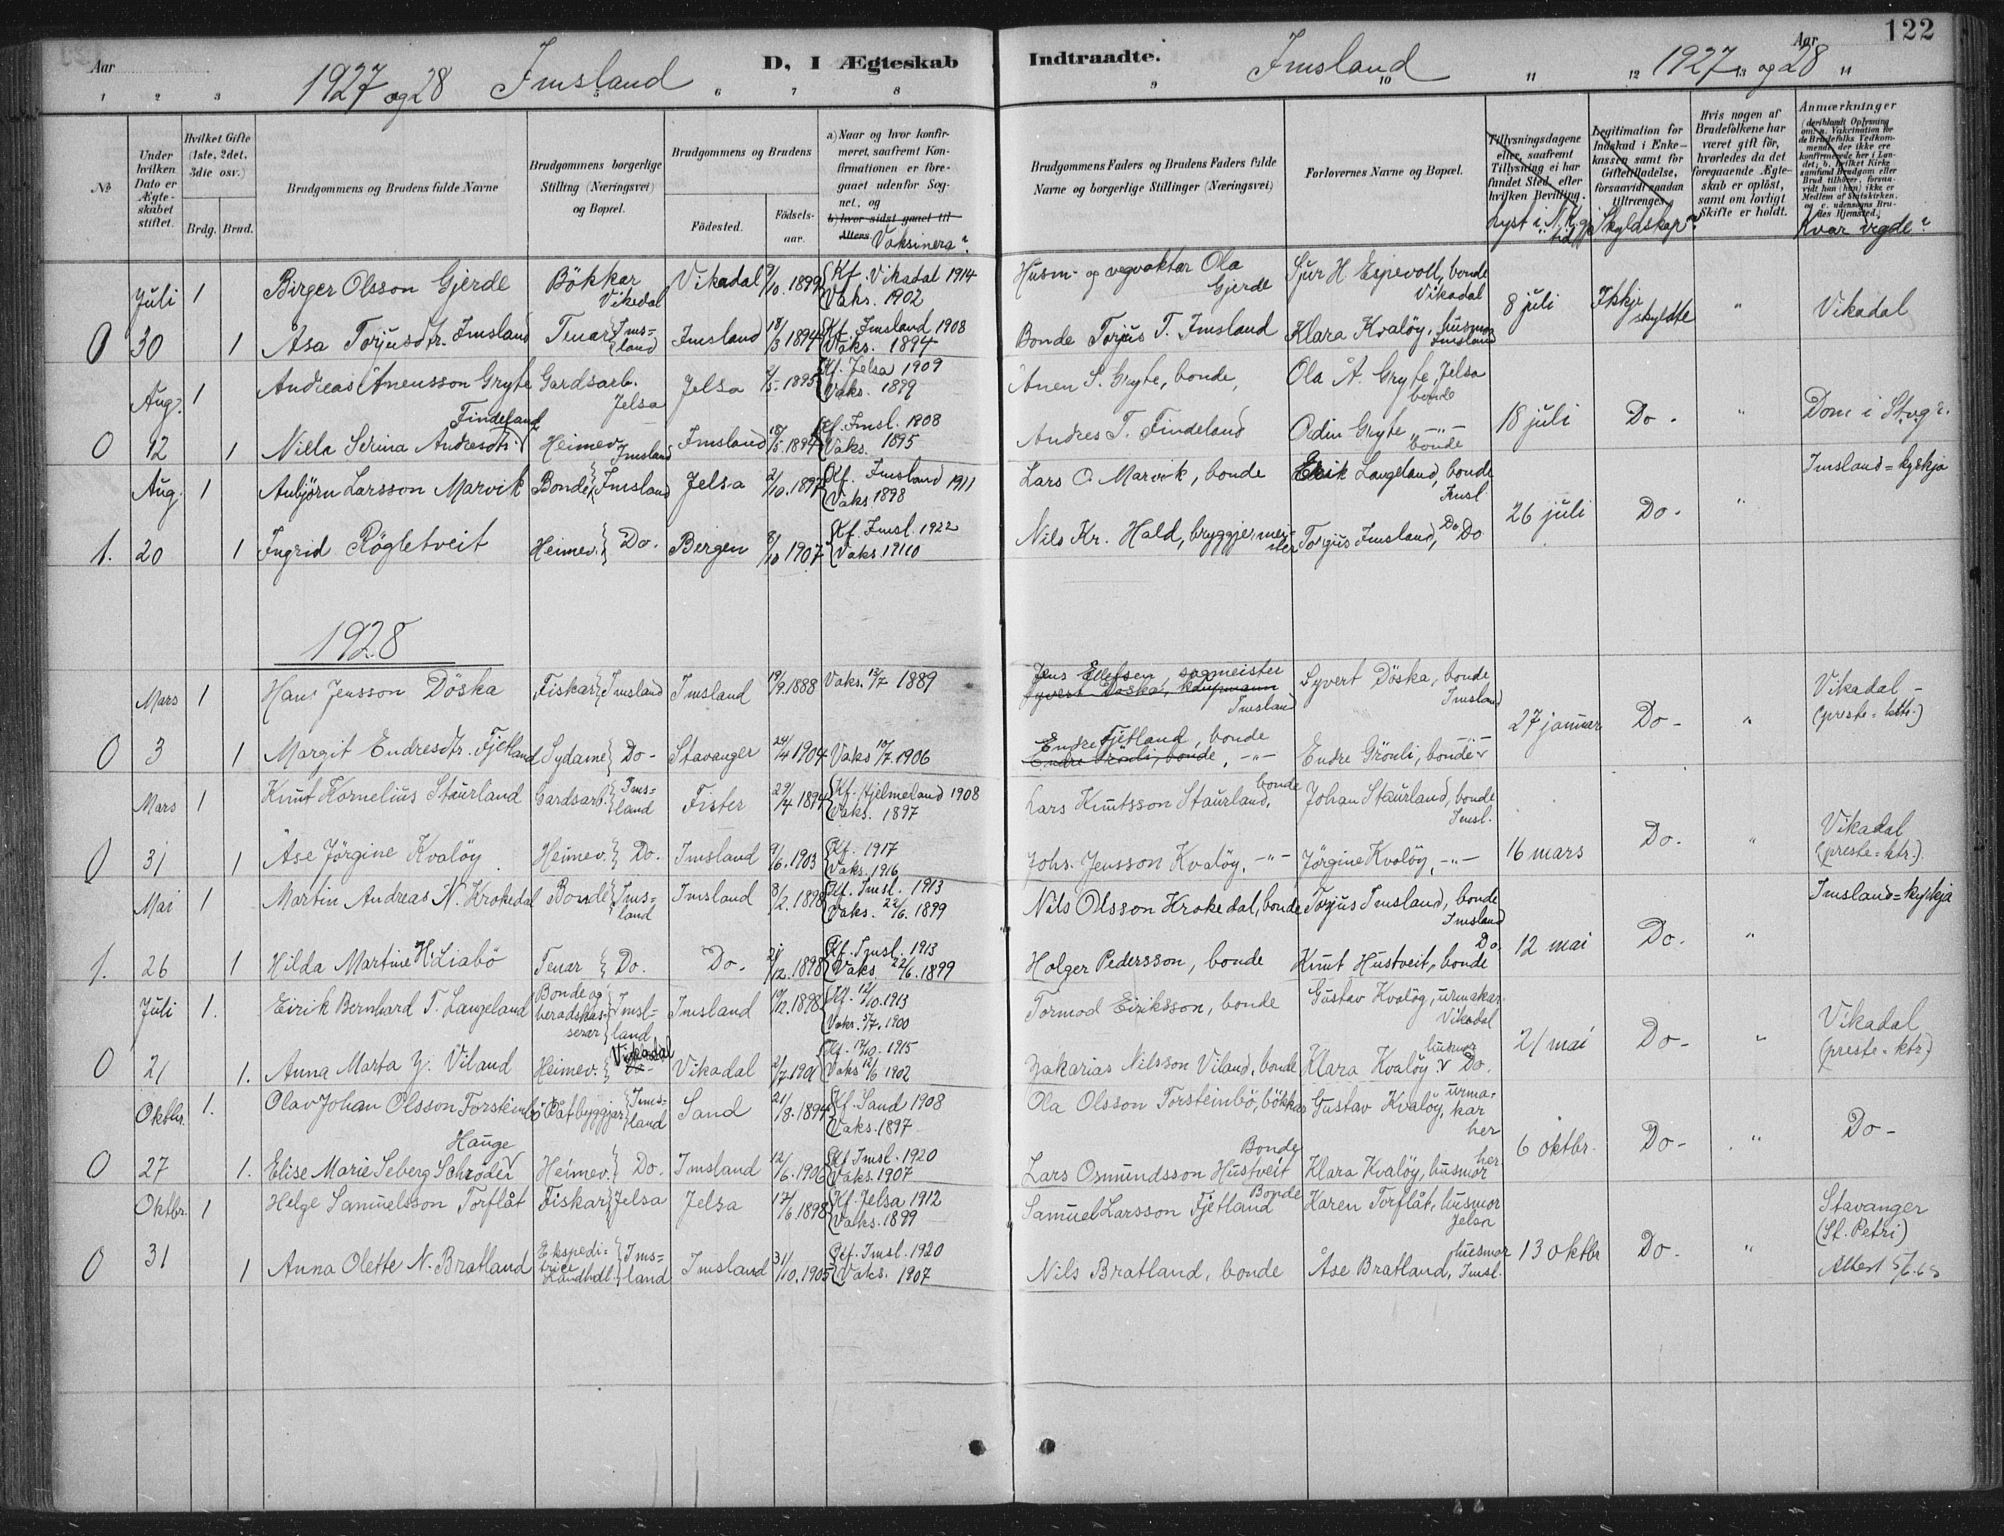 122
Aar
1927 og 28
Imsland
D, I Ægteskab
Indtraadte.
Imsland
Aar
1927 og 28
1 2 3 5 6 7 8 9 10 11 12 13 14
№
Under hvilken Dato er Ægteskabet stiftet.
Hvilket Gifte (1ste, 2det, 3die osv.)
Brdg. Brud.
Brudgommens og Brudens fulde Navne
Brudgommens borgerlige Stilling (Næringsvei) og Bopæl.
Brudgommens og Brudens
Födested.
Födselsaar.
a) Naar og hvor konfirmeret, saafremt Konfirmationen er foregaaet udenfor Sognet, og
b) hvor sidst gaaet til Alters
Vaksinera?
Brudgommens Faders og Brudens Faders fulde Navne og borgerlige Stillinger (Næringsvei)
Forlovernes Navne og Bopæl.
Tillysningsdagene eller, saafremt Tillysning ei har fundet Sted, efter hvilken Bevilling.
Lyst i N. K. gj.
Legitimation for Indskud i Enkekassen samt for Giftetilladelse, forsaavidt saadan tiltrænges.
Skyldskap?
Hvis nogen af Brudefolkene har været gift för, hvorledes da det foregaaende Ægteskab er oplöst, samt om lovligt Skifte er holdt.
Anmærkninger
Kvar vigde?
Juli 1 Birger Olsson Gjerde Bökkar Vikedal Vikadal 9/10. 1899 Kf. Vikadal 1914 Vaks. 1902 Husm- og vegvaktar Ola Gjerde Sjur H. Espevoll, bonde Vikadal
8 juli Ikkje skyldte " Vikadal
0 30 1 Åsa Torjusdtr. Imsland Tenar Imsland Imsland 18/3 1894 Kf. Imsland 1908 Vaks. 1894 Bonde Torjus T. Imsland Klara Kvalöy, husmor Imsland
Aug. 1 Andreas Ånensson Gryte Gardsarb. Jelsa Jelsa 1895 Kf. Jelsa 1909 Vaks. 1899 Ånen S. Gryte, bonde, Ola Å. Gryte, Jelsa bonde
18 juli Do - " Dom i Stvgr.
0 12 1 Nilla Serina Andresdtr. Findeland Heimev. Imsland Imsland 1894 Kf. Imsl. 1908 Vaks. 1895 Andres T. Findeland Odin Gryte -"- bonde
Aug. 1 Anbjörn Larsson Marvik Bonde Imsland Jelsa 2/10. 1897 Kf. Imsland 1911 Vaks 1898 Lars O Marvik, bonde Erik Langeland, bonde Imsl.
26 juli Do - " Imsland=kyrkja
1. 20 1 Ingrid Rögletveit Heimev. Do. Bergen 1907 Kf. Imsl. 1922 Vaks 1910 Nils Kr. Hald, bryggjermeister Torjus Imsland, Do Do
1928
Mars 1 Hans Jensson Döska Fiskar Imsland Imsland 19/9. 1888 Vaks. 13/7 1889 Jens Ellefsen sagmeister Syvert Döska, kaupmann Imsland Syvert Döska, bonde Imsland
27 januar Do - " Vikadal - (preste=ktr.)
0 3 1 Margit Endresdtr. Fjetland Sydame Do - Stavanger 24/4 1904 Vaks 10/7. 1906 Endre Fjetland, bonde Endre Grönli, bonde, -"- Endre Grönli, bonde
Mars 1 Knut Kornelius Staurland Gardsarb. Imsland Fister 29/4 1894 Kf. Hjelmeland 1908 Vaks. 1897 Lars Knutsson Staurland, bonde Johan Staurland, bonde Imsl.
16 mars Do. " Vikadal (preste=ktr.).
0 31 1 Åse Jörgine Kvalöy Heimev. Do. Imsland 9/6. 1903 Kf. 1917 Vaks. 1916 Johs. Jensson Kvalöy, -"- Jörgine Kvalöy, -"-
Mai 1 Martin Andreas N. Krokedal Bonde Imsland Imsland 8/2. 1898 Kf. Imsl. 1913 Vaks. 22/6. 1899 Nils Olsson Krokedal, bonde Torjus Imsland, bonde Imsland
12 mai Do. " Imsland=kyrkja
1. 26 1 Hilda Martine H. Liabö Tenar Do. Do. 21/12. 1898 Kf. Imsl. 1913 Vaks 22/6. 1899 Holger Pedersson, bonde Knut Hustveit, bonde Do.
Juli 1. Eirik Bernhard T. Langeland Bonde og heradskasserar Imsland Imsland 19/12. 1898 Kf. 12/10. 1913 Vaks. 5/7. 1900 Tormod Eiriksson, bonde Gustav Kvalöy, urmakar Vikadal
21 mai Do - " Vikadal (preste=ktr.)
0 21 1. Anna Marta Z. Viland Heimev. Vikadal Vikadal 2/7. 1901 Kf. 17/10. 1915 Vaks 12/6 1902 Zakarias Nilsson Viland, bonde Klara Kvalöy husmor Do.
Oktbr. 1. Olav Johan Olsson Torsteinbö Båtbyggjar Imsland Sand 21/8. 1894 Kf. Sand 1908 Vaks. 1897 Ola Olsson Torsteinbö, bökkar Gustav Kvalöy, urmakar her
6 oktbr. Do - " Do -
0 27 1. Elise Marie Seberg Schröder Hauge Heimev. Do. Imsland 12/6. 1906 Kf Imsl. 1920 Vaks. 1907 Lars Osmundsson Hustveit Bonde Klara Kvalöy, husmor her
Oktbr. 1 Helge Samuelsson Torflåt Fiskar Jelsa Jelsa 17/6. 1898 Kf. Jelsa 1912 Vaks. 1899 Samuel Larsson Fjetland Bonde Karen Torflåt, husmor Jelsa
13 oktbr Do - " Stavanger (St. Petri)
0 31 1 Anna Olette N. Bratland Ekspeditrice Landhdl. Imsland Imsland 31/10. 1905 Kf. Imsl. 1920 Vaks. 1907 Nils Bratland, bonde Åse Bratland, husmor Imsl.